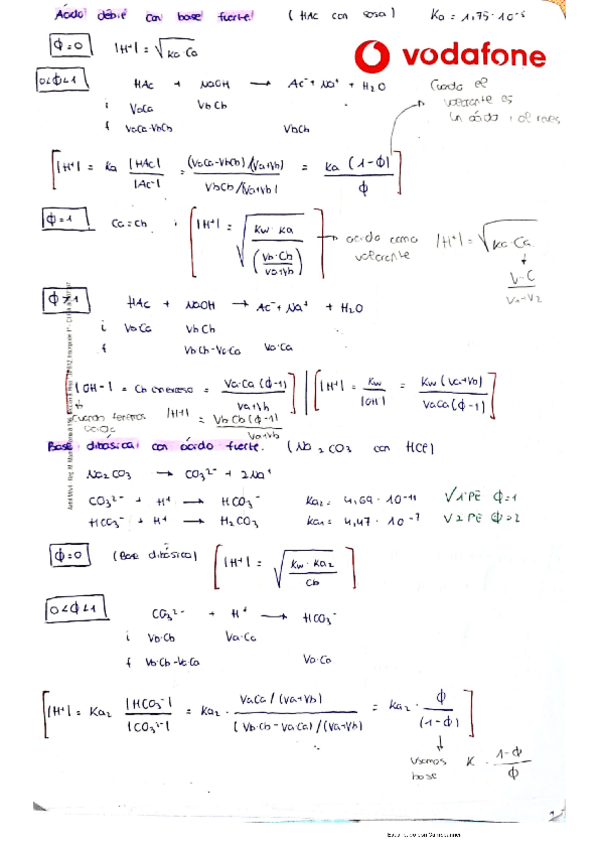 Ácido débil con base fuerte! (HAc con sosa) Ka = 1,75·10⁻⁵
ϕ=0 |H⁺| = √Ka·Ca
vodafone
0<ϕ<1 HAc + NaOH → Ac⁻ + Na⁺ + H₂O
Cuando el valorante es un ácido, al revés
i VaCa VbCb
f VaCa-VbCb VbCb
|H⁺| = Ka |HAc| / |Ac⁻| = (VaCa-VbCb)/(Va+Vb) / VbCb/(Va+Vb) = Ka (1-ϕ) / ϕ
ϕ=1 Ca=Cb i |H⁺| = √Kw·Ka / (Vb·Cb / Va+Vb) → ácido como valorante |H⁺| = √Ka·Ca
V·C / V₁-V₂
ϕ>1 HAc + NaOH → Ac⁻ + Na⁺ + H₂O
i VaCa VbCb
f VbCb-VaCa Va·Ca
|OH⁻| = Cb en exceso = Va·Ca(ϕ-1) / Va+Vb || |H⁺| = Kw / |OH⁻| = Kw(Va+Vb) / VaCa(ϕ-1)
Cuando tenemos ácido |H⁺| = Vb Cb(ϕ-1) / Va+Vb
Base dibásica con ácido fuerte. (Na₂CO₃ con HCl)
Na₂CO₃ → CO₃²⁻ + 2Na⁺
CO₃²⁻ + H⁺ → HCO₃⁻ Ka₂ = 4,69·10⁻¹¹ V 1ºPE ϕ=1
HCO₃⁻ + H⁺ → H₂CO₃ Ka₁ = 4,47·10⁻⁷ V 2 PE ϕ=2
ϕ=0 (Base dibásica) |H⁺| = √Kw·Ka₂ / Cb
0<ϕ<1 CO₃²⁻ + H⁺ → HCO₃⁻
i Vb·Cb Va·Ca
f Vb·Cb-VaCa Va·Ca
|H⁺| = Ka₂ |HCO₃⁻| / |CO₃²⁻| = Ka₂ · VaCa/(Va+Vb) / (Vb·Cb-VaCa)/(Va+Vb) = Ka₂ · ϕ / (1-ϕ)
Usamos base K · 1-ϕ / ϕ